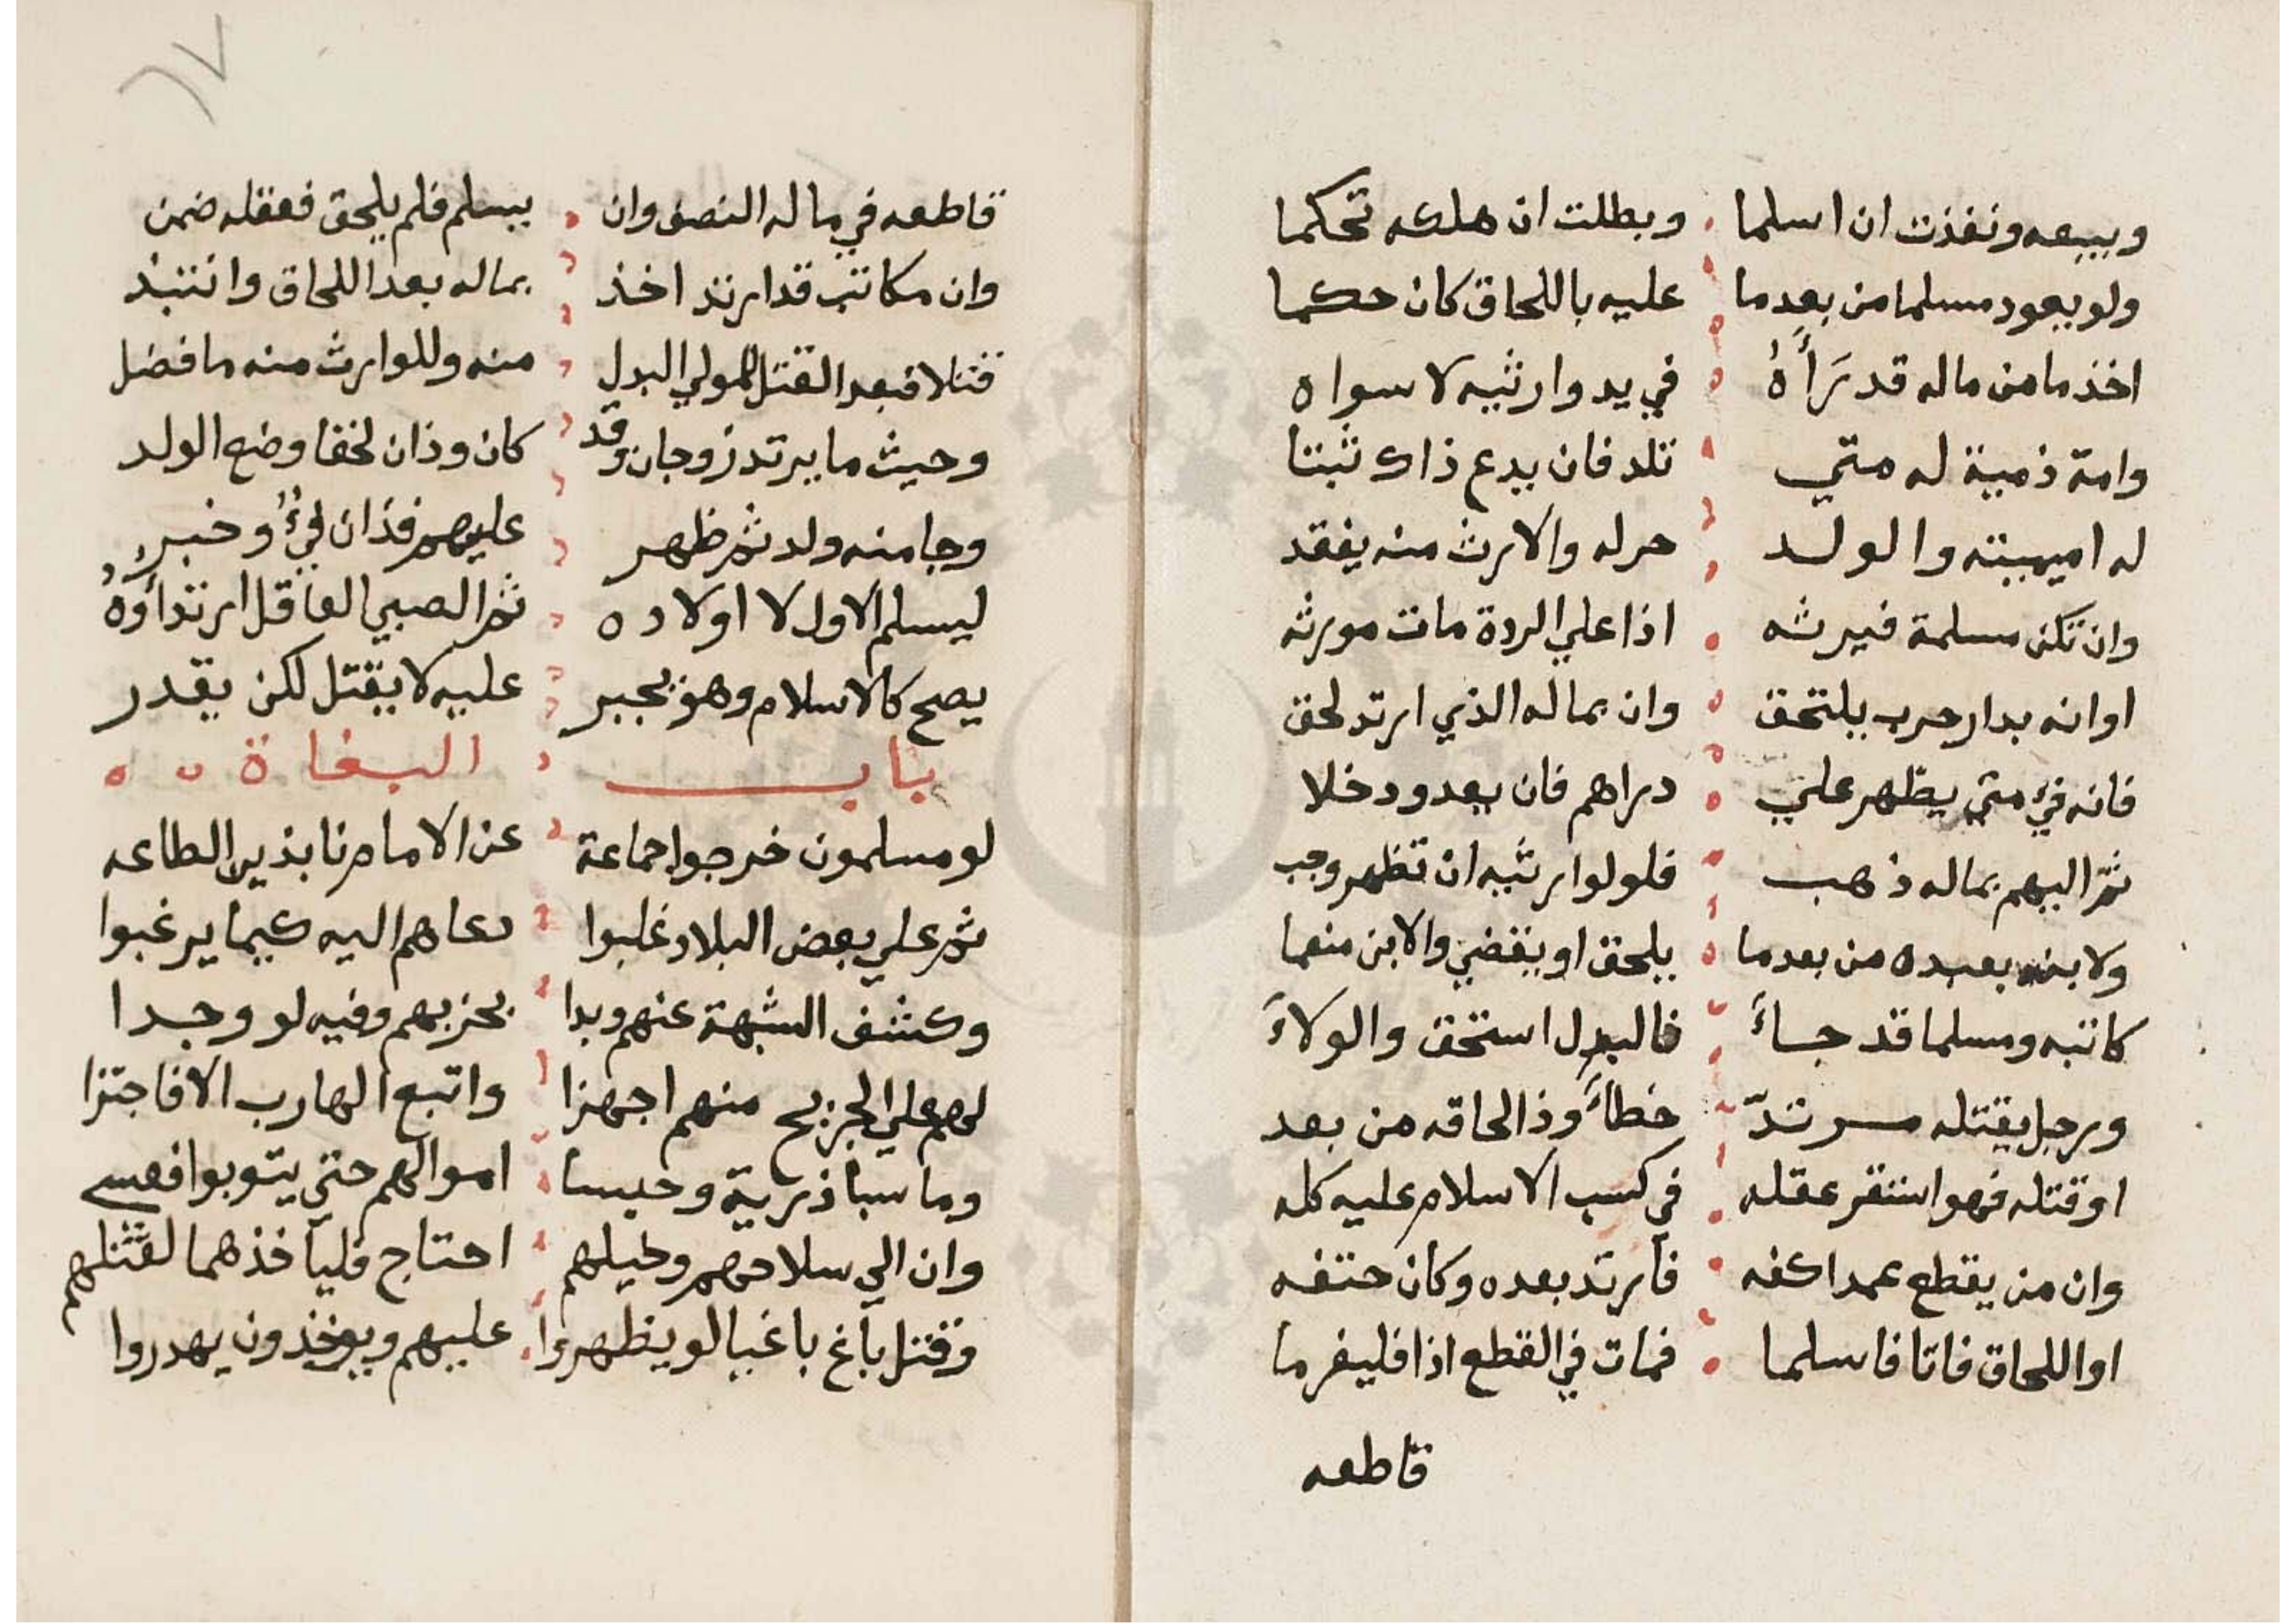 وبيعه ونفذت ان اسلما وبطلت ان هلكه تحكما
ولو يعود مسلما من بعدما عليه باللحاق كان حكما
اخذ ما من ماله قد تراه في يد وارثيه لا سواه
وامة ذمية له متي تلد فان يدع ذاك ثبتا
له اميهيته والولد حر له والارث منه يفقد
وان تكن مسلمة فيرثه اذا علي الردة مات مورثه
او انه بدار حرب يلتحق وان بماله الذي ارتد لحق
فانه فيء متي يظهر علي دراهم فان يعد ودخلا
ثم اليهم بماله ذهب فلو لوارثيه ان تظهر وجب
ولابنه بعبده من بعدما يلحق او يقضي والابن منهما
كاتبه ومسلما قد جاء فالبدل استحق والولاء
ورجل يقتله مرتد خطأ وذا لحاقه من بعد
او قتله فهو استقر عقله في كسب الاسلام عليه كله
وان من يقطع عمدا كفه فارتد بعده وكان حتفه
او اللحاق فاتا فاسلما فمات في القطع اذا فليغرما
قاطعه
قاطعه في ماله النصف وان يسلم فلم يلحق فعقله ضمن
وان مكاتب قد ارتد اخذ بماله بعد اللحاق وانتبذ
قتلا فبعد القتل للمولي البدل منه وللوارث منه ما فضل
وحيث ما يرتد زوجان وقد كان وذان لحقا وضع الولد
وجا منه ولد ثم ظهر عليهم فذان فيء وخبر
ليسلم الاول لا اولاده ثم الصبي العاقل ارتداؤه
يصح كالاسلام وهو يجبر عليه لا يقتل لكن يقدر
باب البغاة
لو مسلمون خرجوا جماعة عن الامام نابذين الطاعه
ثم علي بعض البلاد غلبوا دعاهم اليه كيما يرغبوا
وكشف الشبهة عنهم وبدا بحزبهم وفيه لو وجدا
لهم علي الجريح منهم اجهزا واتبع الهارب الا فاجتزا
وما سبا ذرية وحبسا اموالهم حتي يتوبوا فعسي
وان الي سلاحهم وخيلهم احتاج فلياخذهما لقتلهم
وقتل باغ باغيا لو يظهروا عليهم ويوخذون يهدروا